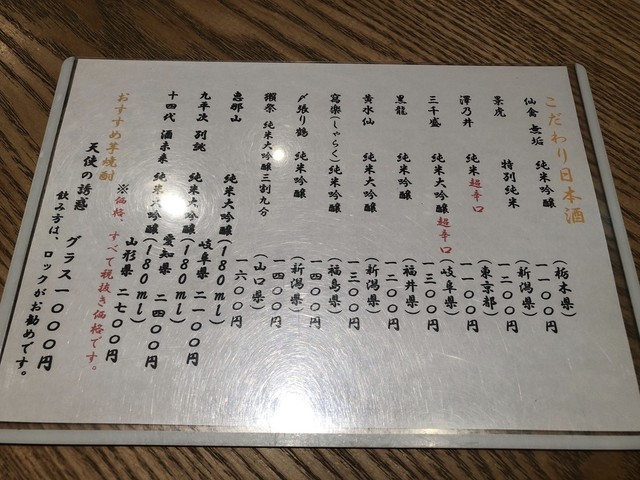 こだわり日本酒
仙禽 無垢 純米吟醸 (栃木県) 一一〇〇円
景虎 特別純米 (新潟県) 一二〇〇円
澤乃井 純米超辛口 (東京都) 一一〇〇円
三千盛 純米大吟醸 超辛口 (岐阜県) 一三〇〇円
黒龍 純米吟醸 (福井県) 一二〇〇円
黄水仙 純米大吟醸 (新潟県) 一三〇〇円
寫樂(しゃらく) 純米吟醸 (福島県) 一四〇〇円
〆張り鶴 純米吟醸 (新潟県) 一四〇〇円
獺祭 純米大吟醸三割九分 (山口県) 一六〇〇円
恵那山 純米大吟醸(180ml) 岐阜県 二一〇〇円
九平次 別誂 純米大吟醸(180ml) 愛知県 二四〇〇円
十四代 酒未来 純米大吟醸(180ml) 山形県 二七〇〇円
※価格、すべて税抜き価格です。
おすすめ芋焼酎
天使の誘惑 グラス一〇〇〇円
飲み方は、ロックがお勧めです。